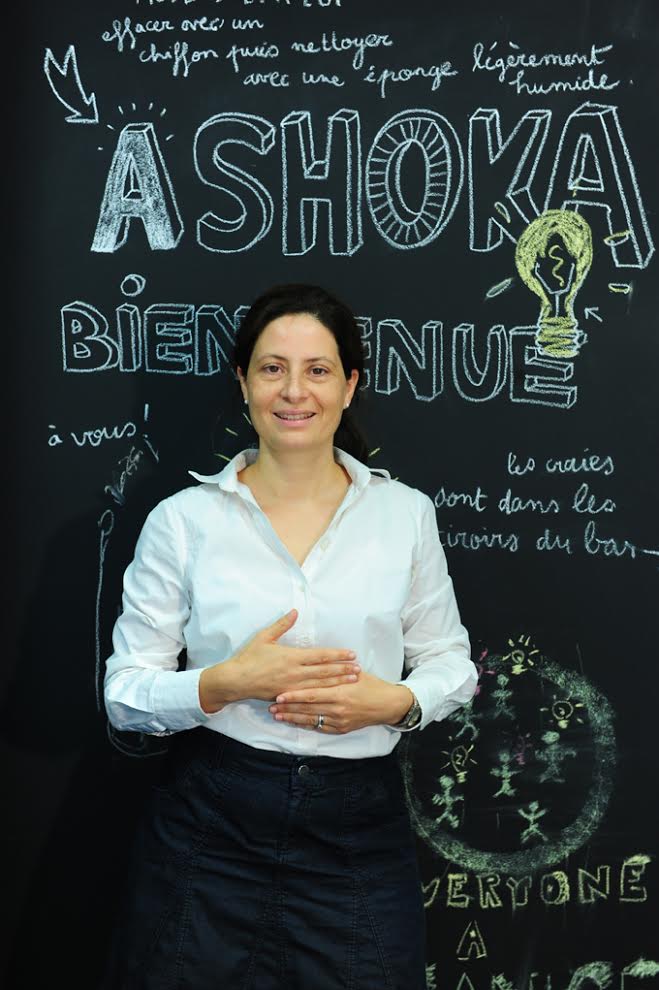 effacer avec un
chiffon puis nettoyer
avec une éponge légèrement
humide.
ASHOKA
BIENVENUE
à vous!
les craies
sont dans les
tiroirs du bar
EVERYONE
A